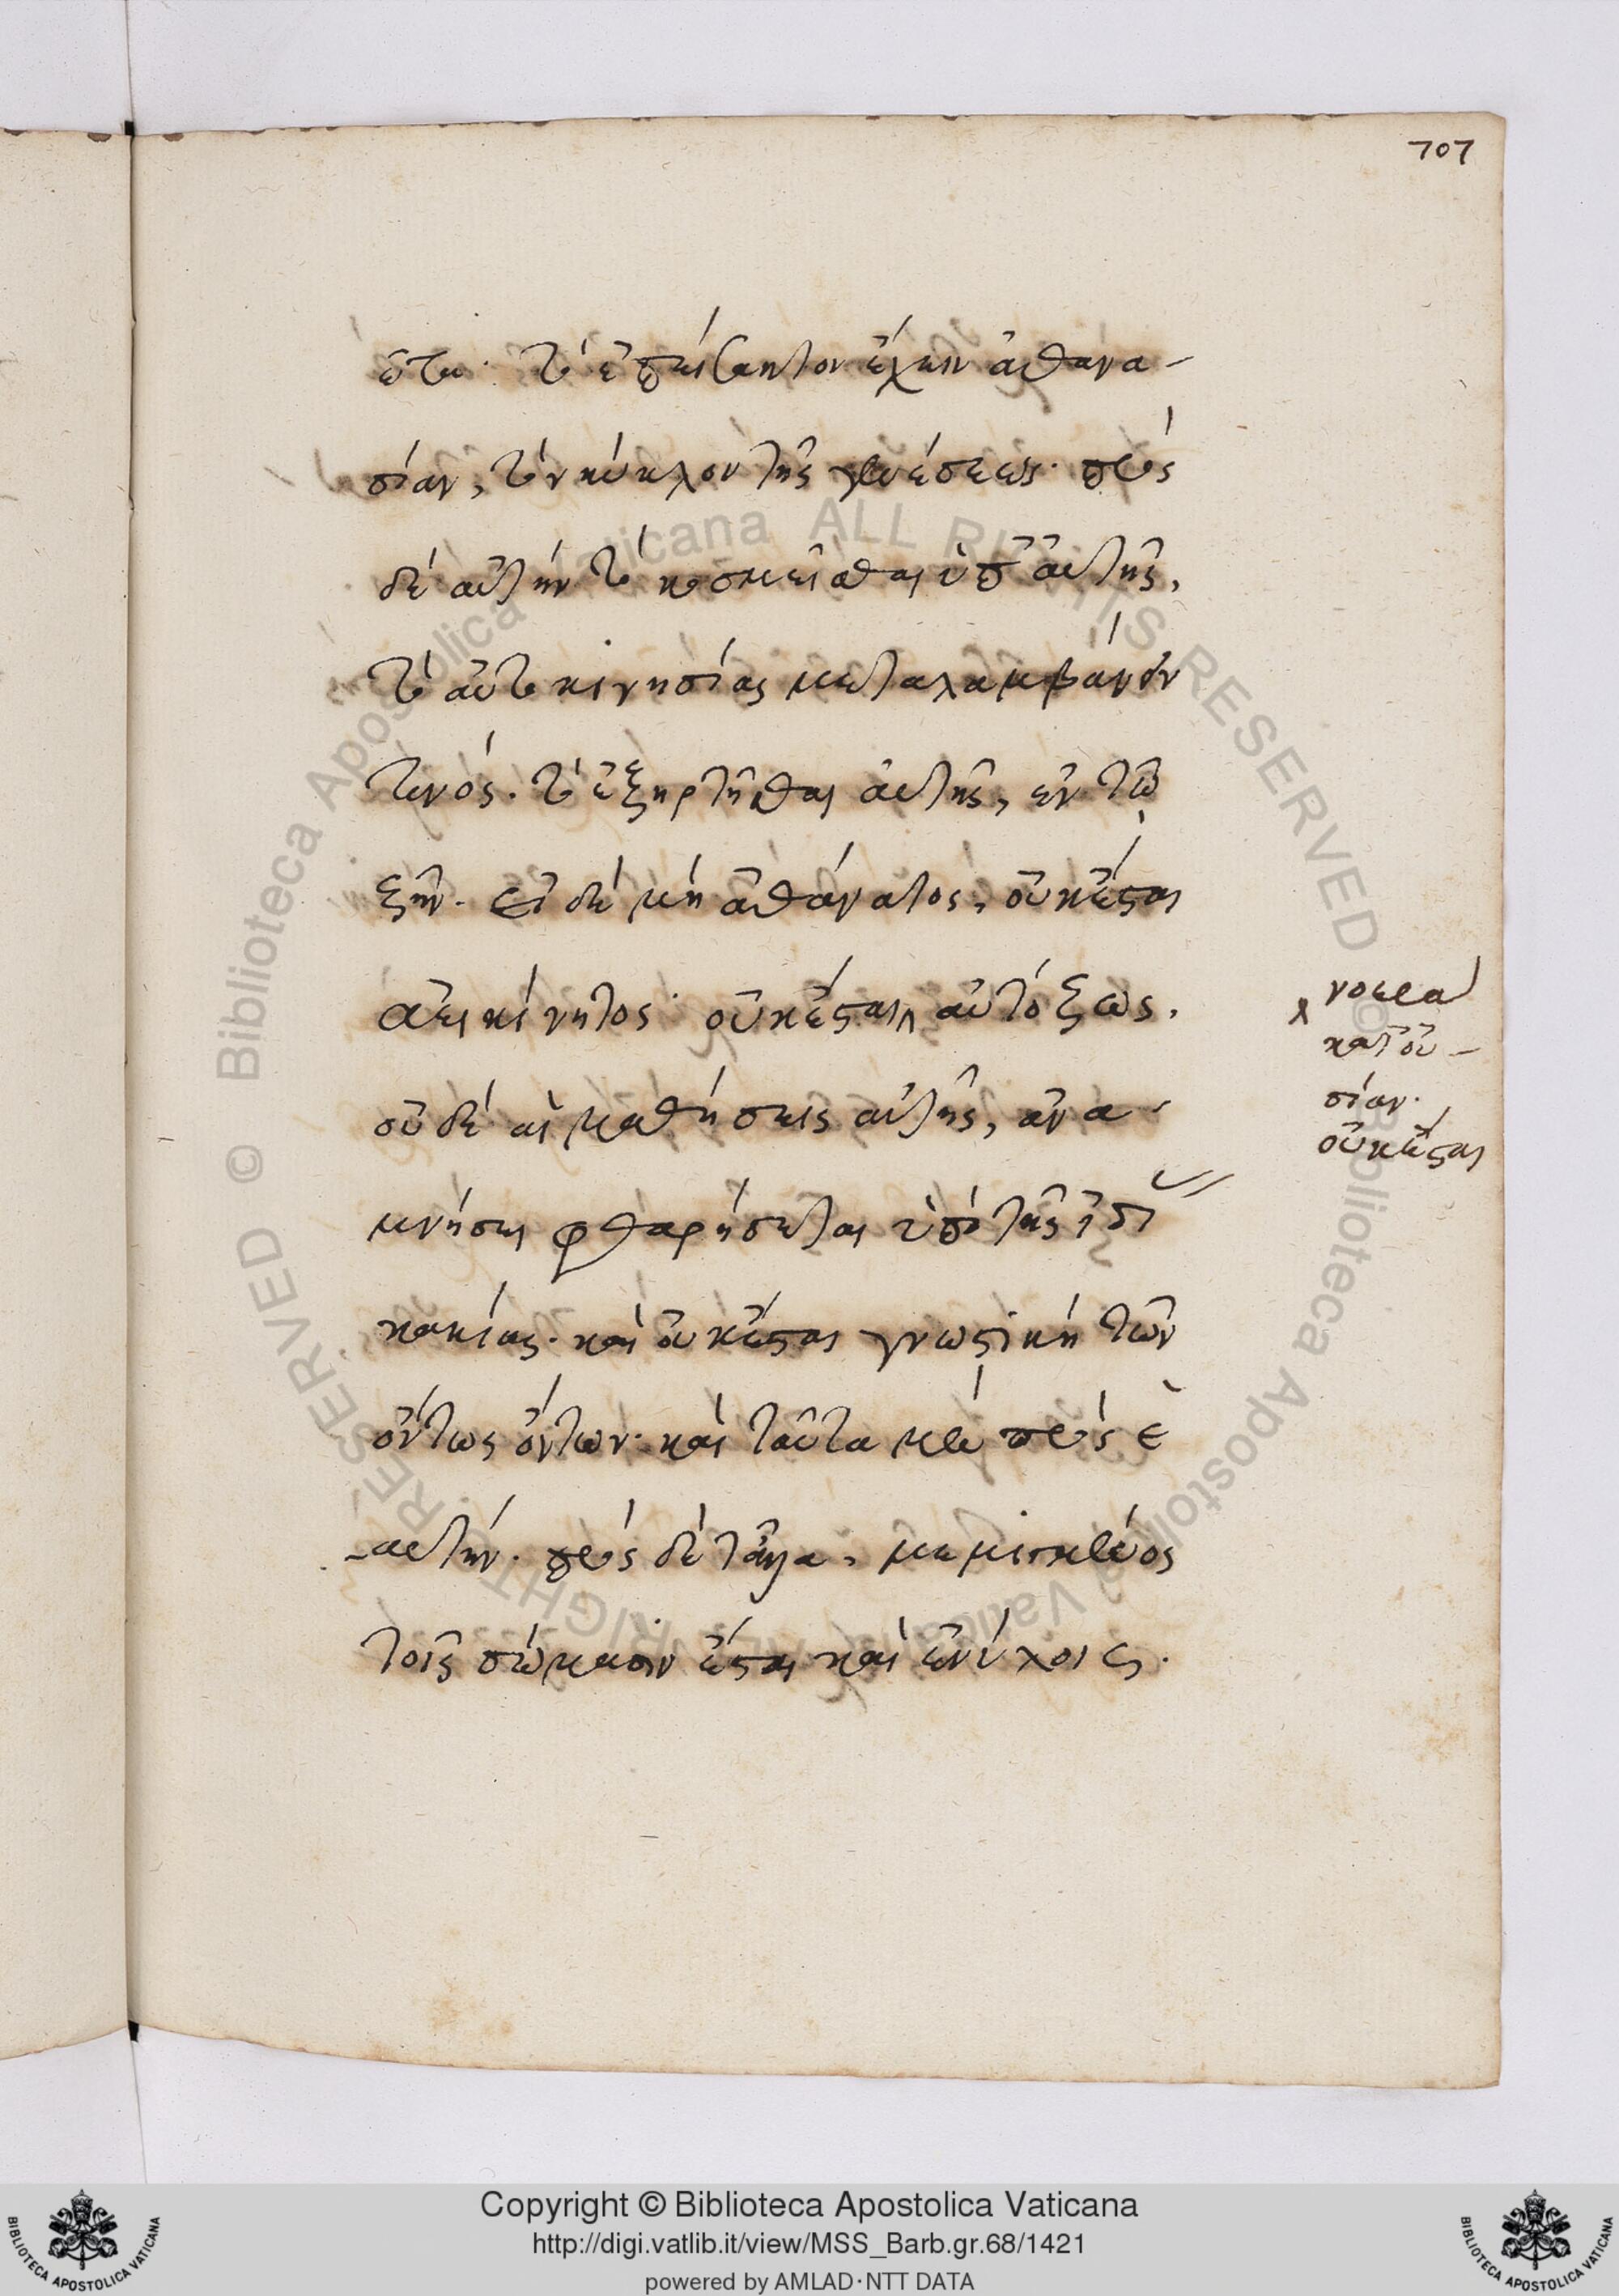 707
ἑτε· τὸ ἐπείσακτον ἔχειν ἀθανα-
σίαν, τὸν κύκλον τῆς γενέσεως· πρὸς
δὲ αὐτὴν τὸ κοσμεῖσθαι ὑπ' αὐτῆς,
τὸ αὐτοκινησίας μεταλαμβάνόν
τινός. τὸ ἐξηρτῆσθαι αὐτῆς, ἐν τῷ
ζῆν. εἰ δὲ μὴ ἀθάνατος, οὐκ ἔσται
ἀεικίνητος· οὐκ ἔσται αὐτόζως.
οὐδὲ αἱ μαθήσεις αὐτῆς, ἀνα-
μνήσεις φθαρήσεται ὑπὸ τῆς ἰδί
κακίας. καὶ οὐκ ἔσται γνωστικὴ τῶν
ὄντως ὄντων· καὶ ταῦτα μὲν πρὸς ἑ
-αυτήν. πρὸς δὲ τἆλλα, μεμιγμένος
τοῖς σώμασιν ἔσται καὶ ἐνύλοις.
νοερὰ
κατ' οὐ-
σίαν.
οὐκ ἔσται
Copyright © Biblioteca Apostolica Vaticana
http://digi.vatlib.it/view/MSS_Barb.gr.68/1421
powered by AMLAD·NTT DATA
BIBLIOTECA APOSTOLICA VATICANA
BIBLIOTECA APOSTOLICA VATICANA
© Biblioteca Apostolica Vaticana ALL RIGHTS RESERVED
© Biblioteca Apostolica Vaticana ALL RIGHTS RESERVED